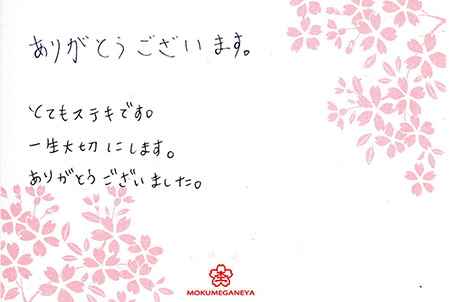 ありがとうございます。
とてもステキです。
一生大切にします。
ありがとうございました。
MOKUMEGANEYA